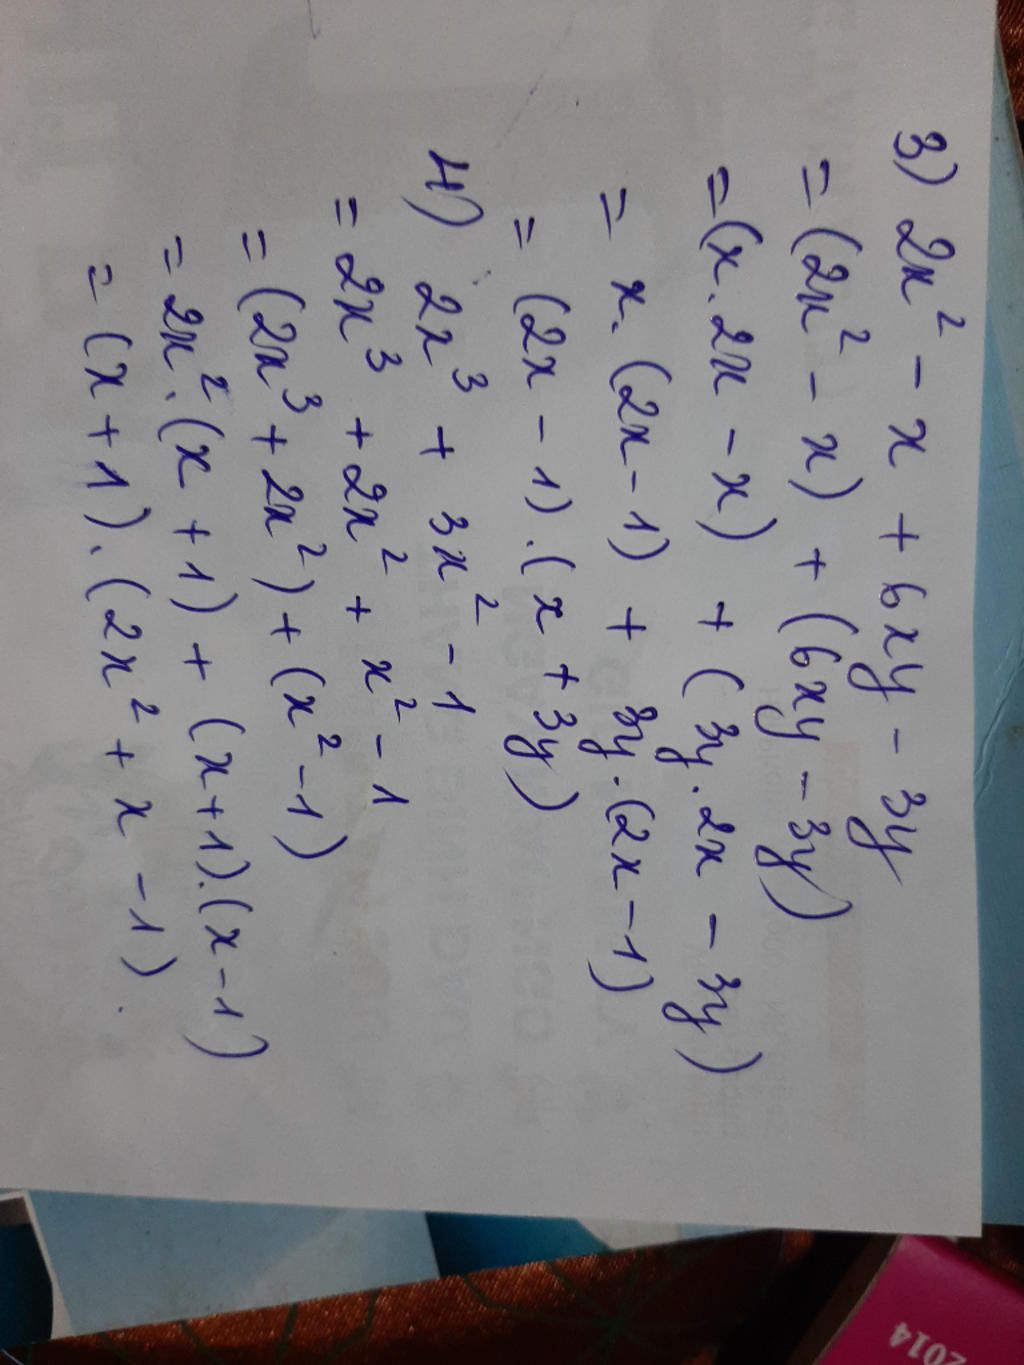 3) 2x² - x + 6xy - 3y
= (2x² - x) + (6xy - 3y)
= (x.2x - x) + (3y.2x - 3y)
= x.(2x - 1) + 3y.(2x - 1)
= (2x - 1).(x + 3y)
4) 2x³ + 3x² - 1
= 2x³ + 2x² + x² - 1
= (2x³ + 2x²) + (x² - 1)
= 2x².(x + 1) + (x + 1).(x - 1)
= (x + 1).(2x² + x - 1).
2014